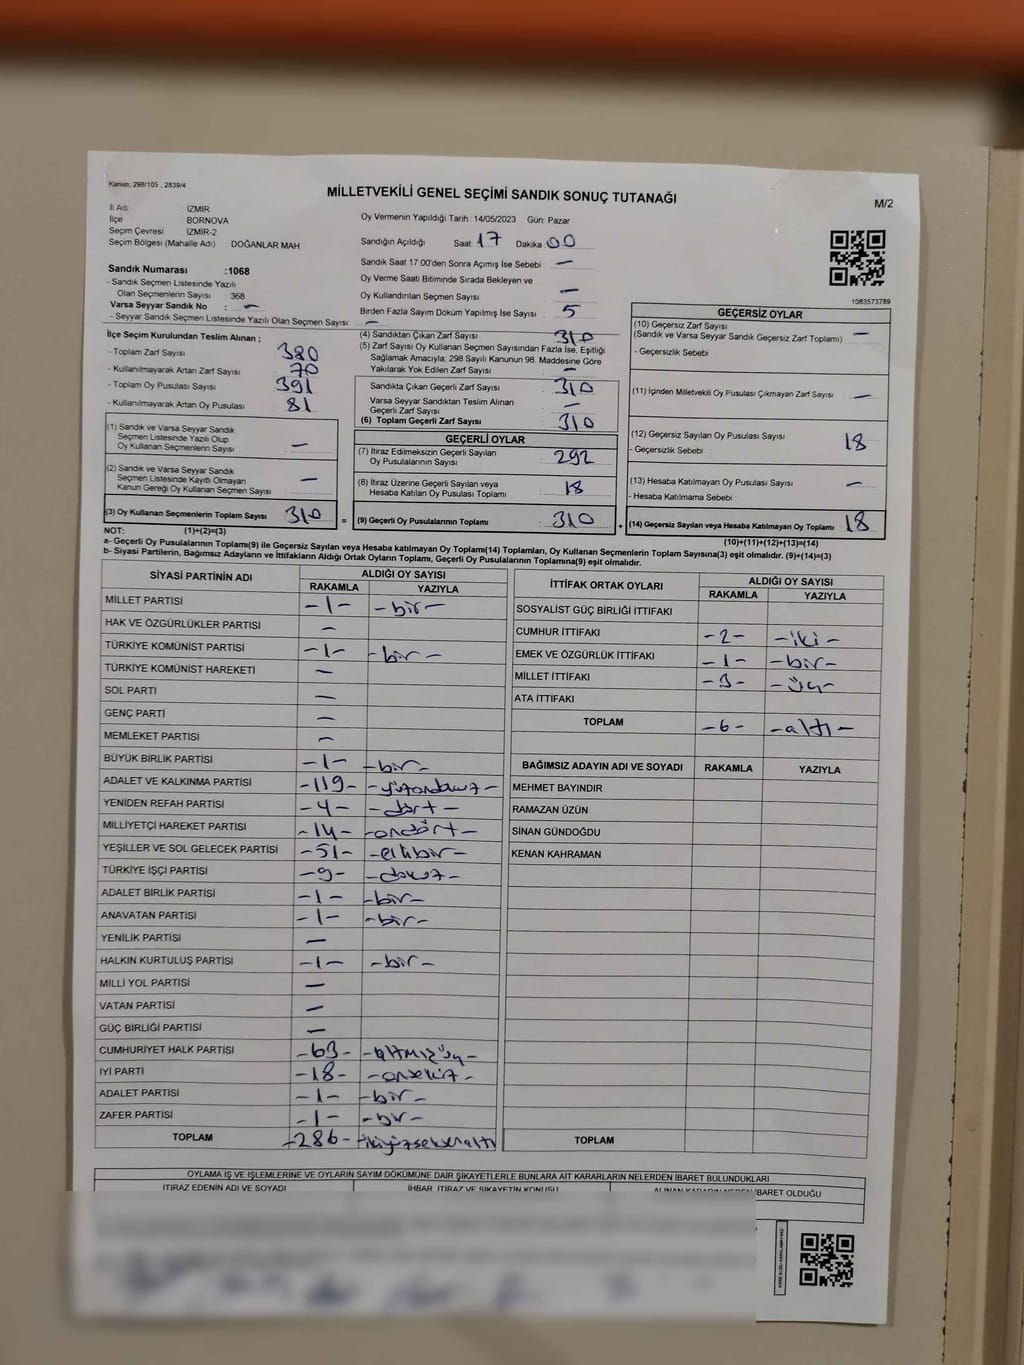 Kanun; 298/105 , 2839/4
MİLLETVEKİLİ GENEL SEÇİMİ SANDIK SONUÇ TUTANAĞI
M/2
İl Adı : İZMİR
İlçe BORNOVA
Seçim Çevresi : İZMİR-2
Seçim Bölgesi (Mahalle Adı) : DOĞANLAR MAH
Sandık Numarası :1068
- Sandık Seçmen Listesinde Yazılı
Olan Seçmenlerin Sayısı : 368
Varsa Seyyar Sandık No : —
- Seyyar Sandık Seçmen Listesinde Yazılı Olan Seçmen Sayısı : —
Oy Vermenin Yapıldığı Tarih :14/05/2023 Gün: Pazar
Sandığın Açıldığı Saat: 17 Dakika: 00
Sandık Saat 17:00'den Sonra Açımış İse Sebebi : —
Oy Verme Saati Bitiminde Sırada Bekleyen ve
Oy Kullandırılan Seçmen Sayısı : —
Birden Fazla Sayım Döküm Yapılmış İse Sayısı : 5
1083573789
İlçe Seçim Kurulundan Teslim Alınan ;
- Toplam Zarf Sayısı : 380
- Kullanılmayarak Artan Zarf Sayısı : 70
- Toplam Oy Pusulası Sayısı : 391
- Kullanılmayarak Artan Oy Pusulası : 81
(1) Sandık ve Varsa Seyyar Sandık
Seçmen Listesinde Yazılı Olup
Oy Kullanan Seçmenlerin Sayısı : —
(2) Sandık ve Varsa Seyyar Sandık
Seçmen Listesinde Kayıtlı Olmayan
Kanun Gereği Oy Kullanan Seçmen Sayısı : —
(3) Oy Kullanan Seçmenlerin Toplam Sayısı : 310
(1)+(2)=(3)
(4) Sandıktan Çıkan Zarf Sayısı : 310
(5) Zarf Sayısı Oy Kullanan Seçmen Sayısından Fazla İse, Eşitliği
Sağlamak Amacıyla; 298 Sayılı Kanunun 98. Maddesine Göre
Yakılarak Yok Edilen Zarf Sayısı : —
Sandıkta Çıkan Geçerli Zarf Sayısı : 310
Varsa Seyyar Sandıktan Teslim Alınan
Geçerli Zarf Sayısı : —
(6) Toplam Geçerli Zarf Sayısı : 310
GEÇERLİ OYLAR
(7) İtiraz Edilmeksizin Geçerli Sayılan
Oy Pusulalarının Sayısı : 292
(8) İtiraz Üzerine Geçerli Sayılan veya
Hesaba Katılan Oy Pusulası Toplamı : 18
= (9) Geçerli Oy Pusulalarının Toplamı : 310
GEÇERSİZ OYLAR
(10) Geçersiz Zarf Sayısı
(Sandık ve Varsa Seyyar Sandık Geçersiz Zarf Toplamı) : —
- Geçersizlik Sebebi :
(11) İçinden Milletvekili Oy Pusulası Çıkmayan Zarf Sayısı : —
(12) Geçersiz Sayılan Oy Pusulası Sayısı : 18
- Geçersizlik Sebebi :
(13) Hesaba Katılmayan Oy Pusulası Sayısı : —
- Hesaba Katılmama Sebebi :
+ (14) Geçersiz Sayılan veya Hesaba Katılmayan Oy Toplamı : 18
(10)+(11)+(12)+(13)=(14)
NOT:
a- Geçerli Oy Pusulalarının Toplamı(9) ile Geçersiz Sayılan veya Hesaba katılmayan Oy Toplamı(14) Toplamları, Oy Kullanan Seçmenlerin Toplam Sayısına(3) eşit olmalıdır. (9)+(14)=(3)
b- Siyasi Partilerin, Bağımsız Adayların ve İttifakların Aldığı Ortak Oyların Toplamı, Geçerli Oy Pusulalarının Toplamına(9) eşit olmalıdır.
SİYASİ PARTİNİN ADI ALDIĞI OY SAYISI
RAKAMLA YAZIYLA
MİLLET PARTİSİ -1- -bir-
HAK VE ÖZGÜRLÜKLER PARTİSİ —
TÜRKİYE KOMÜNİST PARTİSİ -1- -bir-
TÜRKİYE KOMÜNİST HAREKETİ —
SOL PARTİ —
GENÇ PARTİ —
MEMLEKET PARTİSİ —
BÜYÜK BİRLİK PARTİSİ -1- -bir-
ADALET VE KALKINMA PARTİSİ -119- -yüzondokuz-
YENİDEN REFAH PARTİSİ -4- -dört-
MİLLİYETÇİ HAREKET PARTİSİ -14- -ondört-
YEŞİLLER VE SOL GELECEK PARTİSİ -51- -ellibir-
TÜRKİYE İŞÇİ PARTİSİ -9- -dokuz-
ADALET BİRLİK PARTİSİ -1- -bir-
ANAVATAN PARTİSİ -1- -bir-
YENİLİK PARTİSİ —
HALKIN KURTULUŞ PARTİSİ -1- -bir-
MİLLİ YOL PARTİSİ —
VATAN PARTİSİ —
GÜÇ BİRLİĞİ PARTİSİ —
CUMHURİYET HALK PARTİSİ -63- -altmışüç-
İYİ PARTİ -18- -onsekiz-
ADALET PARTİSİ -1- -bir-
ZAFER PARTİSİ -1- -bir-
TOPLAM -286- -ikiyüzseksenaltı
İTTİFAK ORTAK OYLARI ALDIĞI OY SAYISI
RAKAMLA YAZIYLA
SOSYALİST GÜÇ BİRLİĞİ İTTİFAKI
CUMHUR İTTİFAKI -2- -iki-
EMEK VE ÖZGÜRLÜK İTTİFAKI -1- -bir-
MİLLET İTTİFAKI -3- -üç-
ATA İTTİFAKI
TOPLAM -6- -altı-
BAĞIMSIZ ADAYIN ADI VE SOYADI RAKAMLA YAZIYLA
MEHMET BAYINDIR
RAMAZAN ÜZÜN
SİNAN GÜNDOĞDU
KENAN KAHRAMAN
TOPLAM
OYLAMA İŞ VE İŞLEMLERİNE VE OYLARIN SAYIM DÖKÜMÜNE DAİR ŞİKAYETLERLE BUNLARA AİT KARARLARIN NELERDEN İBARET BULUNDUKLARI
İTİRAZ EDENİN ADI VE SOYADI İHBAR, İTİRAZ VE ŞİKAYETİN KONUSU ALINAN KARARIN NEDEN İBARET OLDUĞU